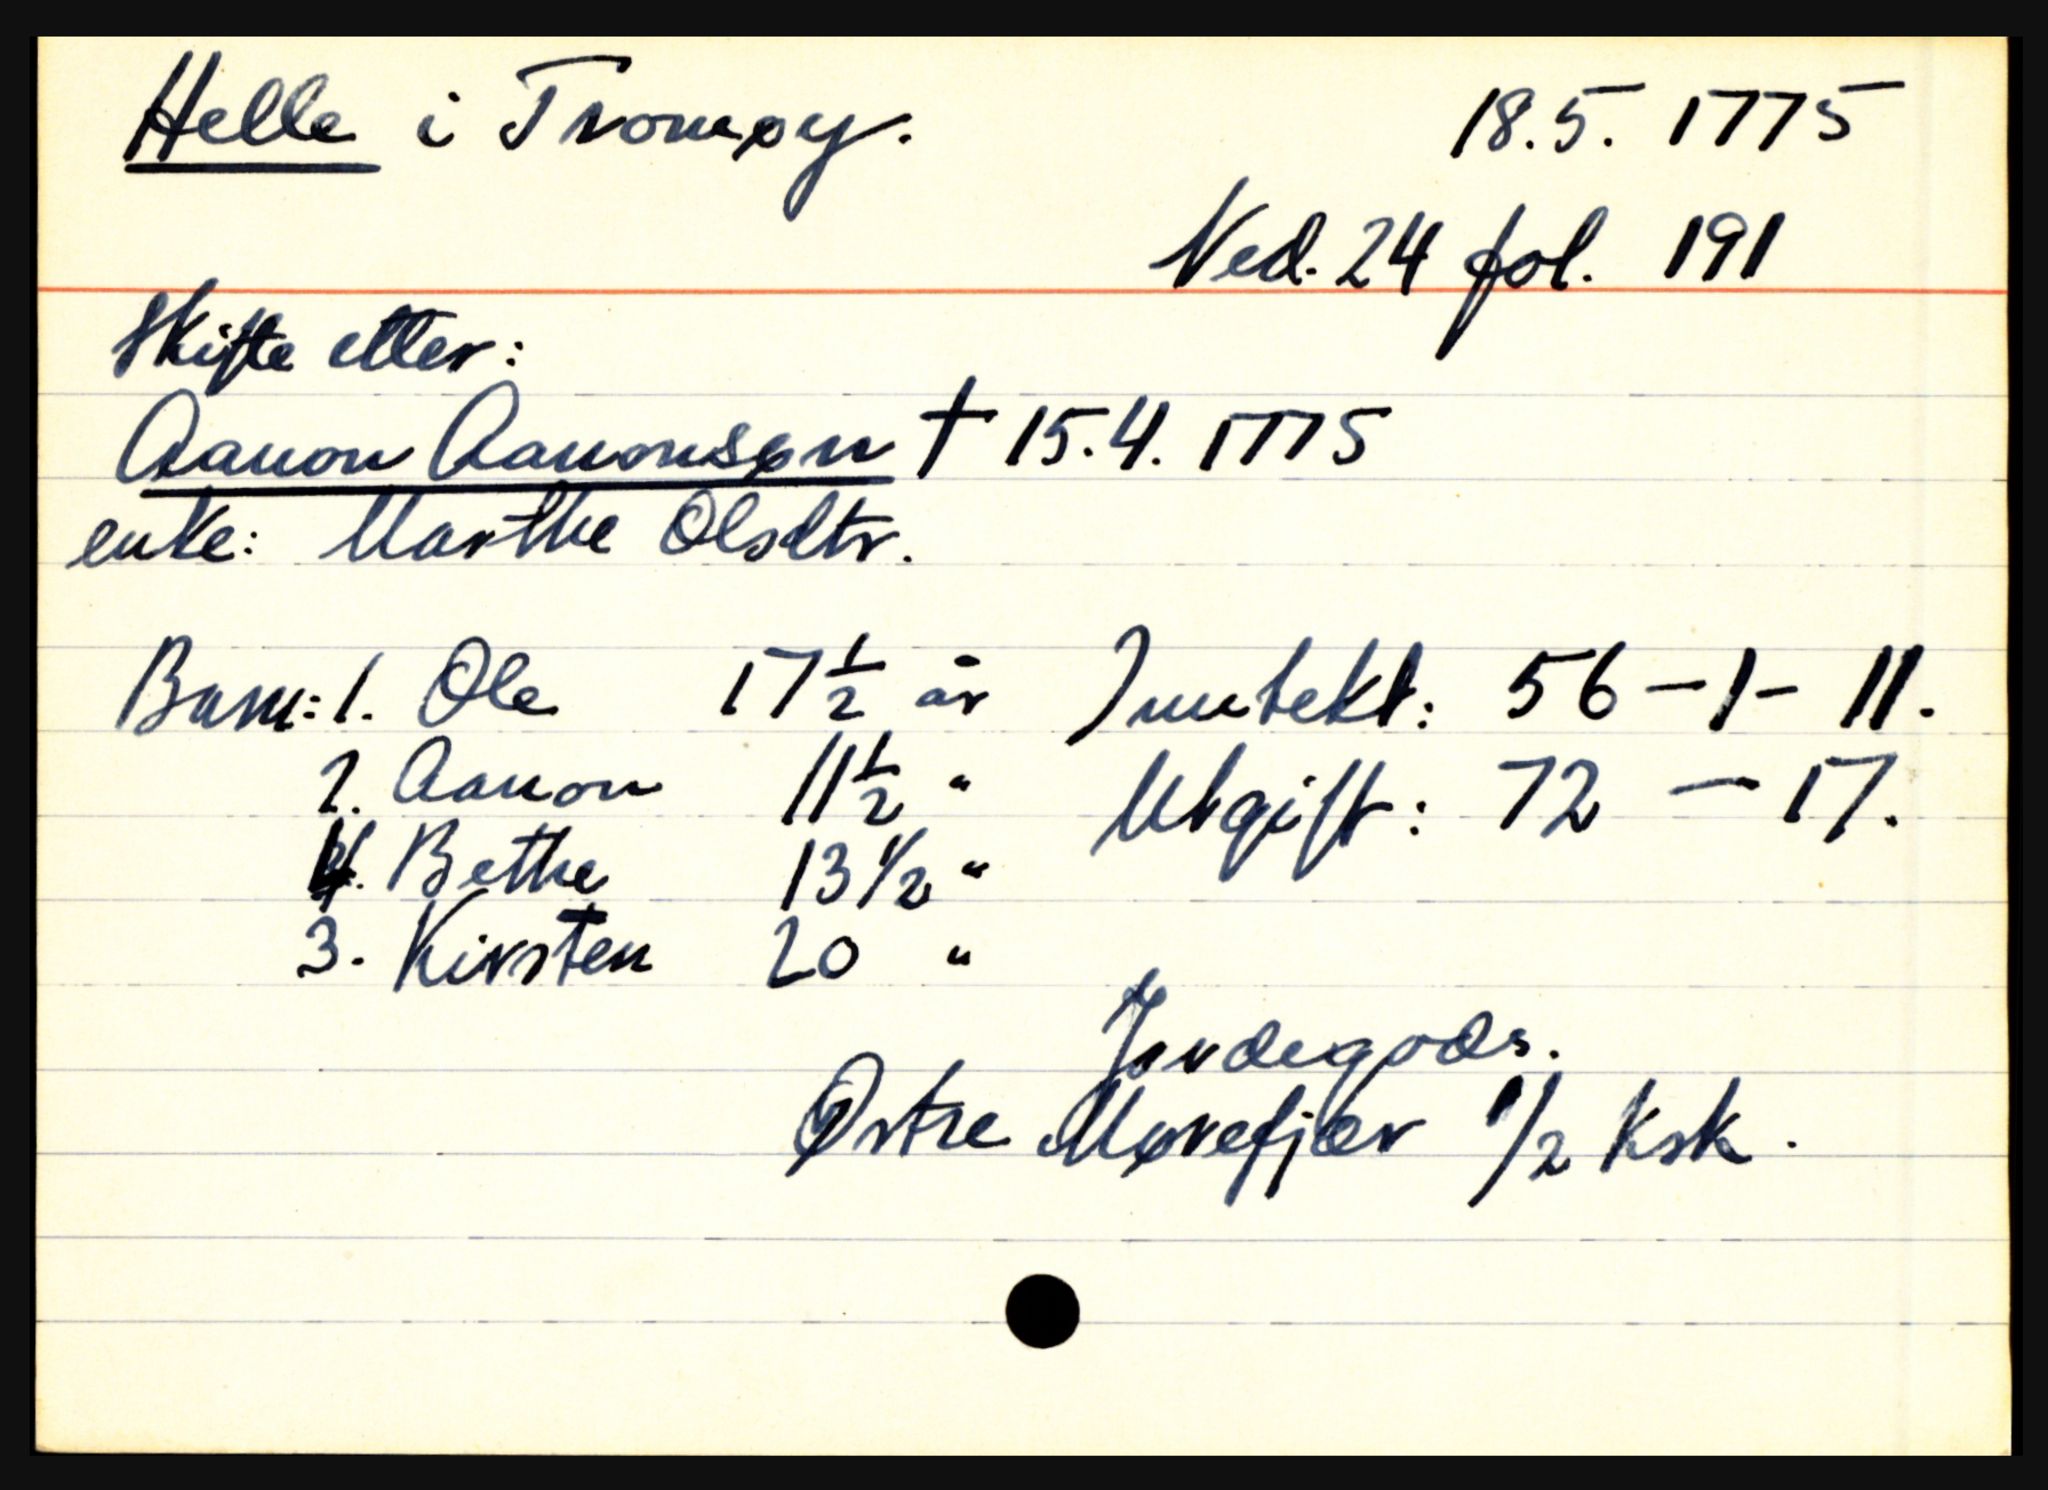 Helle i Tromøy. 18.5. 1775
Ned. 24 fol. 191
Skifte etter:
Aanon Aanonsøn † 15.4. 1775
enke: Marthe Olsdtr.
Barn: 1. Ole 17 1/2 år Inntekt: 56 - 1 - 11.
2. Aanon 11 1/2 " Utgift: 72 - 17.
4. Bethe 13 1/2 "
3. Kirsten 20 "
Jordegods.
Østre Mørefjær 1/2 ksk.